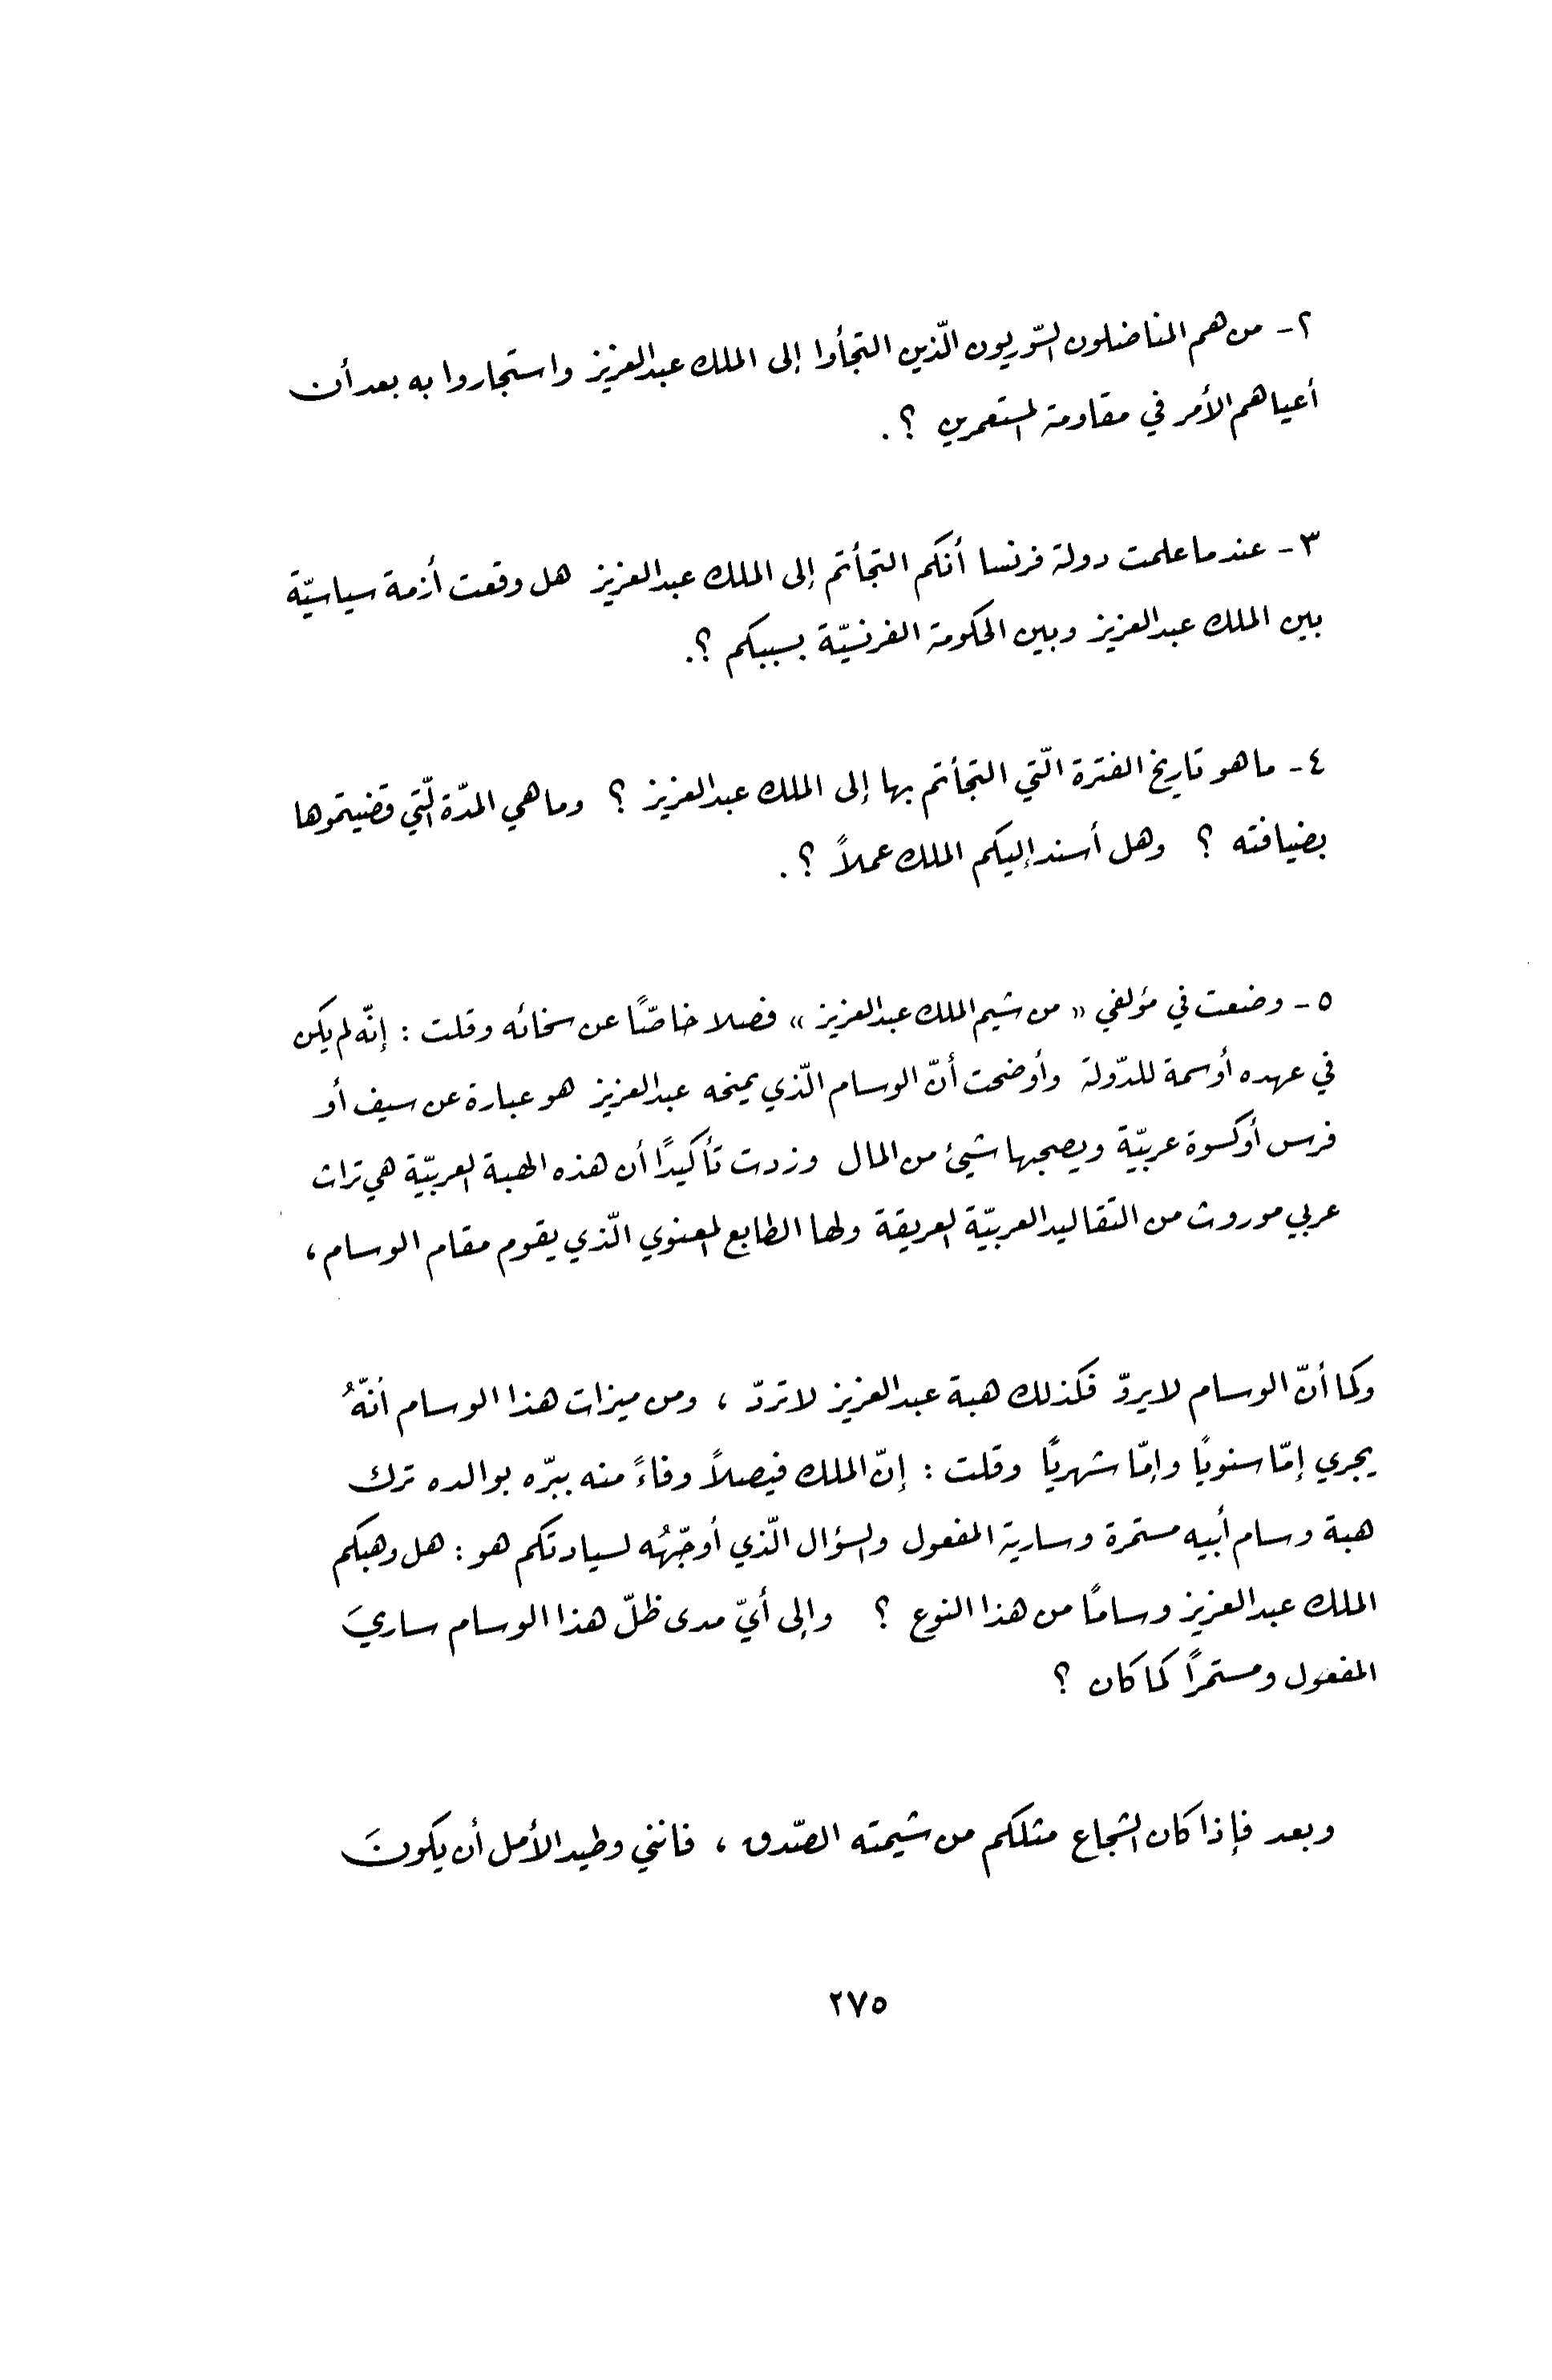 ٢- من هم المناضلون السّوريون الّذين التجأوا إلى الملك عبدالعزيز واستجاروا به بعد أن
أعياهم الأمر في مقاومة المستعمرين ؟.
٣- عندما علمت دولة فرنسا أنكم التجأتم إلى الملك عبدالعزيز هل وقعت أزمة سياسيّة
بين الملك عبدالعزيز وبين الحكومة الفرنسيّة بسببكم ؟.
٤- ما هو تاريخ الفترة الّتي التجأتم بها إلى الملك عبدالعزيز ؟ وما هي المدّة الّتي قضيتموها
بضيافته ؟ وهل أسند إليكم الملك عملاً ؟.
٥- وضعت في مؤلفي « من شيم الملك عبدالعزيز » فصلا خاصّاً عن سخائه وقلت : إنّه لم يكن
في عهده أوسمة للدّولة وأوضحت أنّ الوسام الّذي يمنحه عبدالعزيز هو عبارة عن سيف أو
فرس أو كسوة عربيّة ويصحبها شيئ من المال وزدت تأكيدًا أن هذه الهبة العربيّة هي تراث
عربي موروث من التقاليد العربيّة العريقة ولها الطابع المعنوي الّذي يقوم مقام الوسام ،
وكما أنّ الوسام لا يردّ فكذلك هبة عبدالعزيز لا تردّ ، ومن ميزات هذا الوسام أنّهُ
يجري إمّا سنويًا وإمّا شهريًا وقلت : إنّ الملك فيصلاً وفاءً منه ببرّه بوالده ترك
هبة وسام أبيه مستمرة وسارية المفعول والسؤال الّذي أوجّهُه لسيادتكم هو : هل وهبكم
الملك عبدالعزيز وسامًا من هذا النوع ؟ وإلى أيّ مدى ظلّ هذا الوسام ساريَ
المفعول ومستمرًا كما كان ؟
وبعد فإذا كان الشجاع مثلكم من شيمته الصّدق ، فانني وطيد الأمل أن يكونَ
٢٧٥